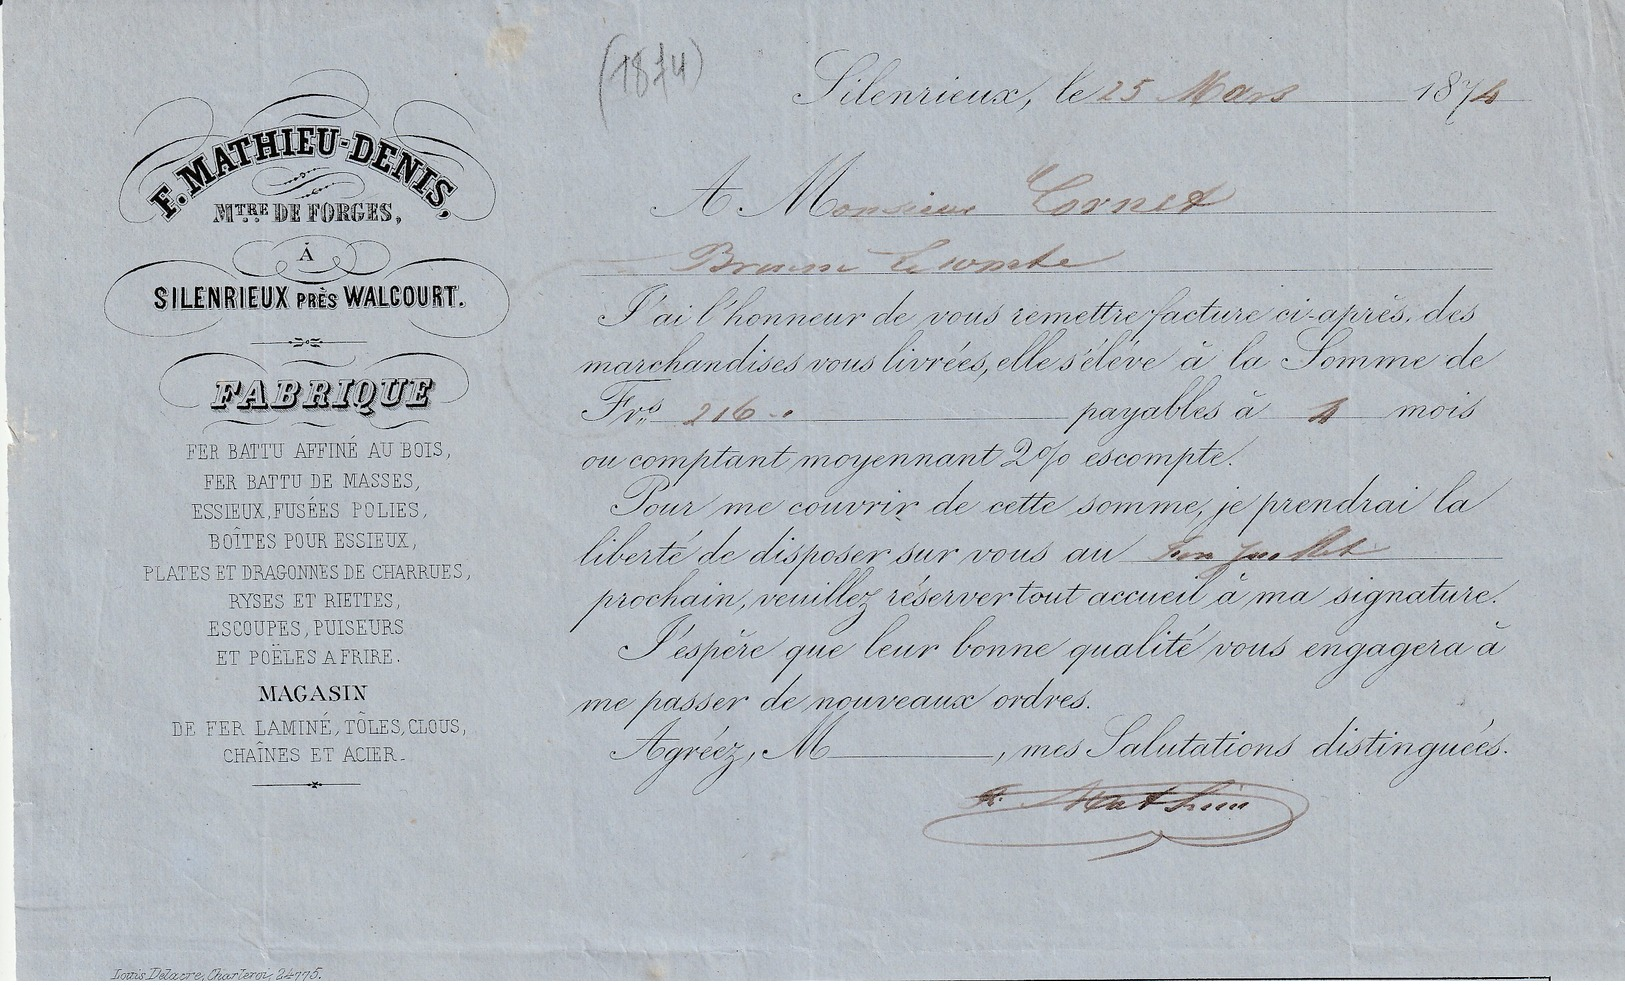 (1874)
Silenrieux, le 25 Mars 1874
F. MATHIEU-DENIS,
MTRE DE FORGES,
À
SILENRIEUX PRÈS WALCOURT.
FABRIQUE
FER BATTU AFFINÉ AU BOIS,
FER BATTU DE MASSES,
ESSIEUX, FUSÉES POLIES,
BOÎTES POUR ESSIEUX,
PLATES ET DRAGONNES DE CHARRUES,
RYSES ET RIETTES,
ESCOUPES, PUISEURS
ET POËLES A FRIRE.
MAGASIN
DE FER LAMINÉ, TÔLES, CLOUS,
CHAÎNES ET ACIER.
A Monsieur Cornet
Braine Le Comte
J'ai l'honneur de vous remettre facture ci-après, des
marchandises vous livrées, elle s'élève à la Somme de
Frs 216 " payables à 4 mois
ou comptant moyennant 2% escompte.
Pour me couvrir de cette somme, je prendrai la
liberté de disposer sur vous au fin Juillet
prochain, veuillez réserver tout accueil à ma signature.
J'espère que leur bonne qualité vous engagera à
me passer de nouveaux ordres.
Agréez, M , mes Salutations distinguées.
F. Mathieu
Louis Delacre, Charleroi, 24775.